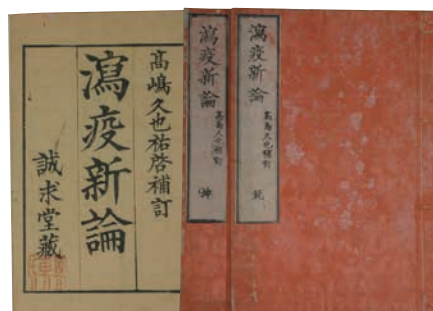 高嶋久也祐啓補訂
瀉疫新論
誠求堂藏
瀉疫新論
高嶋久也補訂
坤
瀉疫新論
高嶋久也補訂
乾